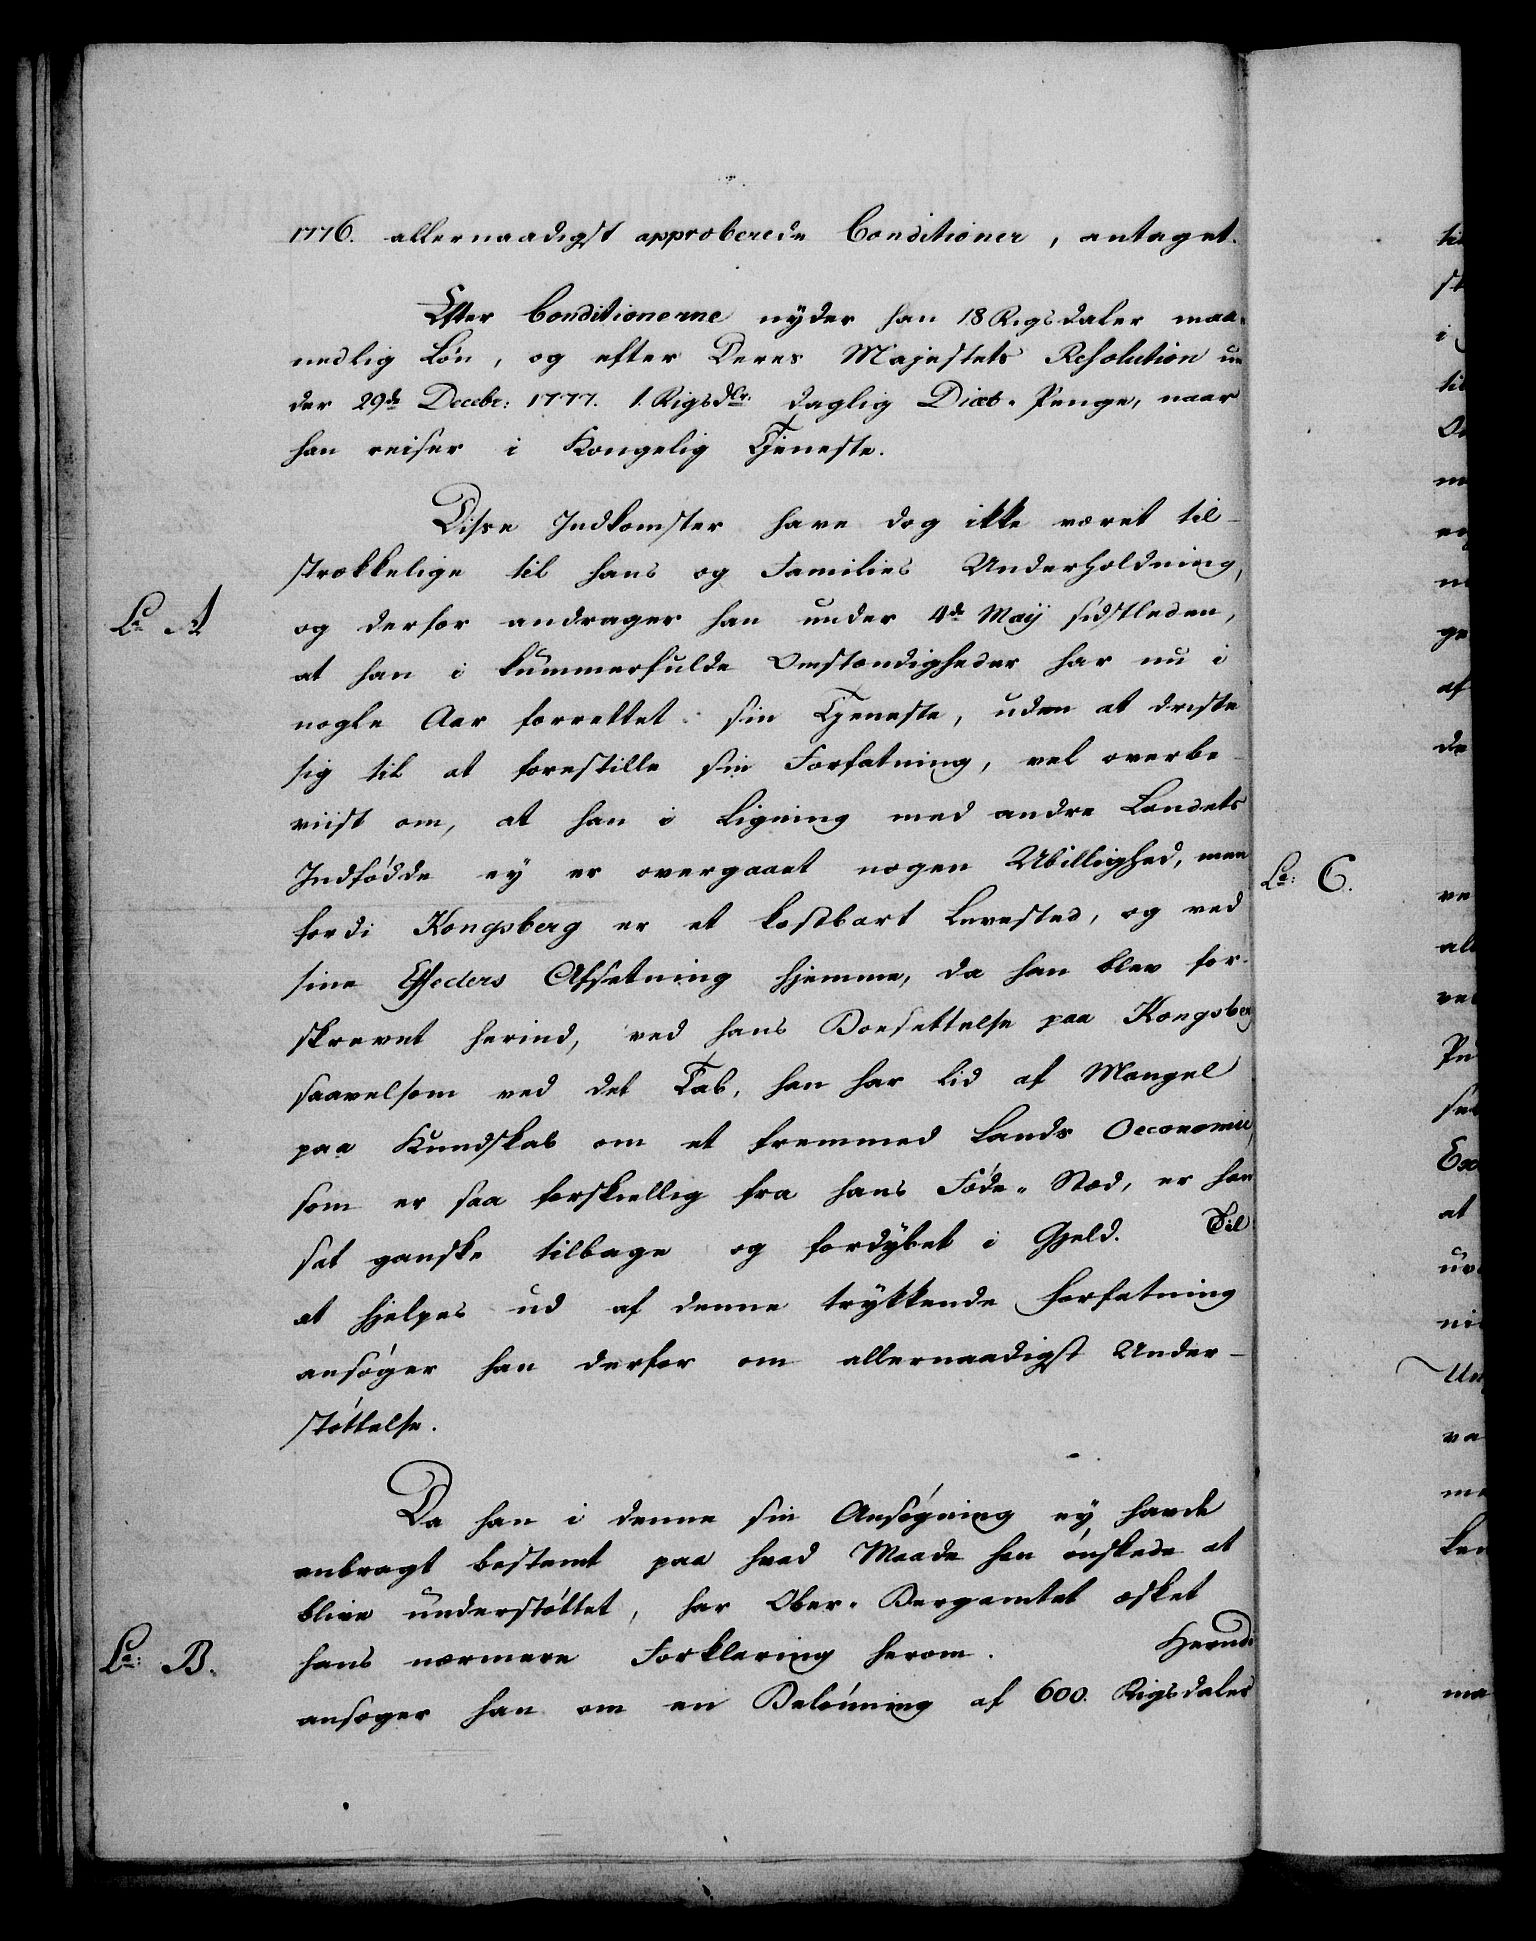 1776. allernaadigst approberede Conditioner, antaget.
Efter Conditionerne nyder han 18 Rigsdaler maa-
nedlig Løn, og efter Deres Majestets Resolution un
der 29de Decebr: 1777. 1. Rigsdlr: daglig Diæt-Penge, naar
han reiser i Kongelig Tjeneste.
Disse Indkomster have dog ikke været til-
strækkelige til hans og Families Underholdning,
La A
og derfor andrager han under 4de Maij sidstleden,
at han i kummerfulde Omstændigheder har nu i
nogle Aar forrettet sin Tjeneste, uden at driste
sig til at forestille sin Forfatning, vel overbe-
viist om, at han i Ligning med andre Landets
Indfødde ey er overgaaet nogen Ubillighed, men
fordi Kongsberg er et kostbart Levested, og ved
sine Effecters Afsetning hjemme, da han blev for-
skrevet herind, ved hans Boesættelse paa Kongsberg
saavelsom ved det Tab, han har lid af Mangel
paa Kundskab om et fremmed Lands Oeconomie,
som er saa forskiellig fra hans Føde-Stæd, er han
sat ganske tilbage og fordybet i Gjeld. Til
at hjelpes ud af denne trykkende Forfatning
ansøger han derfor om allernaadigst Under-
støttelse.
Da han i denne sin Ansøgning ey havde
anbragt bestemt paa hvad Maade han ønskede at
blive understøttet, har Ober-Bergamtet æsket
La: B.
hans nærmere Forklaring herom. Herudi
ansøger han om en Belønning af 600. Rigsdaler
La: C.